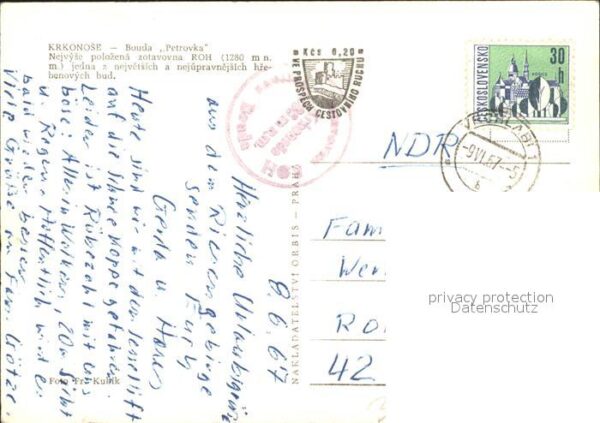 KRKONOŠE – Bouda „Petrovka"
Nejvýše položená zotavovna ROH (1280 m n.
m.) jedna z největších a nejúpravnějších hře-
benových bud.
Kčs 0,20
VE PROSPĚCH CESTOVNÍHO RUCHU
ČESKOSLOVENSKO
30
h
VRCHLABÍ 1
-9.VI.67-
ROH
NDR
Fam
Wer
Ro
42
8.6.67
Herzliche Urlaubsgrüße
aus dem Riesengebirge
senden Euch
Gerda u. Hans
Heute sind wir mit dem Sessellift
auf die Schneekoppe gefahren.
Leider ist Rübezahl mit uns
böse! Alles in Wolken, 20 m Sicht
u. Regen. Hoffentlich wird er
bald wieder besser.
Viele Grüße an Fam. Götze.
NAKLADATELSTVÍ ORBIS – PRAHA
Foto Fr. Kubík
privacy protection
Datenschutz